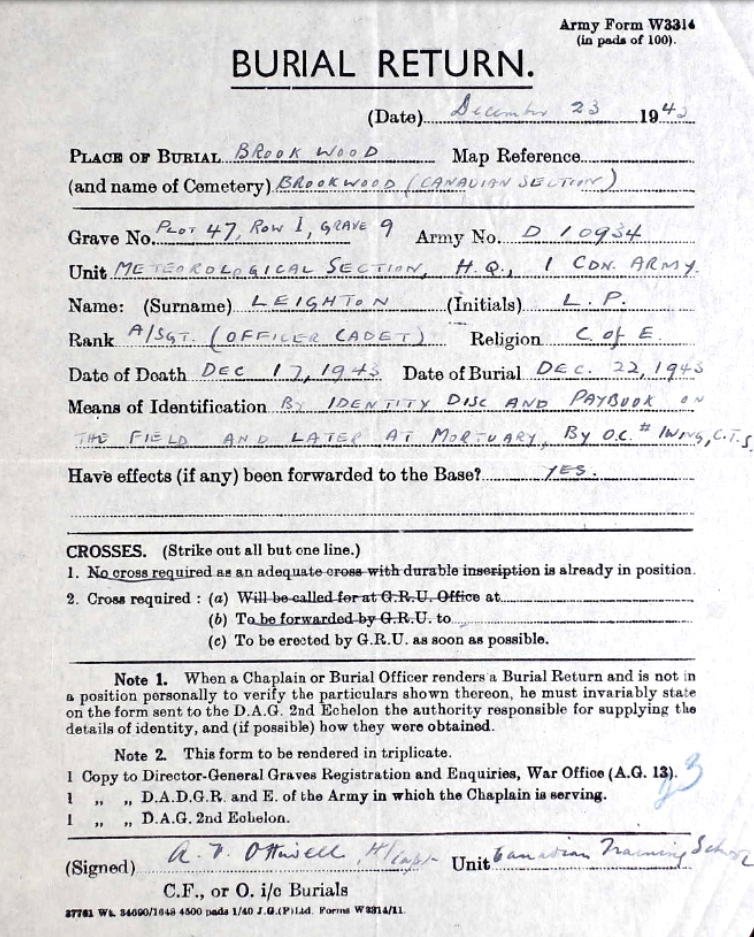 Army Form W3314
(in pads of 100).
BURIAL RETURN.
(Date) December 23 1943
PLACE OF BURIAL BROOKWOOD Map Reference
(and name of Cemetery) BROOKWOOD (CANADIAN SECTION)
Grave No. PLOT 47, ROW I, GRAVE 9 Army No. D 10934
Unit METEOROLOGICAL SECTION, H.Q., 1 CDN. ARMY.
Name: (Surname) LEIGHTON (Initials) L. P.
Rank A/SGT. (OFFICER CADET) Religion C of E.
Date of Death DEC 17, 1943 Date of Burial DEC. 22, 1943
Means of Identification BY IDENTITY DISC AND PAYBOOK ON
THE FIELD AND LATER AT MORTUARY, BY O.C. # 1 WING, C.T.S.
Have effects (if any) been forwarded to the Base? YES.
CROSSES. (Strike out all but one line.)
1. No cross required as an adequate cross with durable inscription is already in position.
2. Cross required : (a) Will be called for at G.R.U. Office at
(b) To be forwarded by G.R.U. to
(c) To be erected by G.R.U. as soon as possible.
Note 1. When a Chaplain or Burial Officer renders a Burial Return and is not in
a position personally to verify the particulars shown thereon, he must invariably state
on the form sent to the D.A.G. 2nd Echelon the authority responsible for supplying the
details of identity, and (if possible) how they were obtained.
Note 2. This form to be rendered in triplicate.
1 Copy to Director-General Graves Registration and Enquiries, War Office (A.G. 13).
1 ,, ,, D.A.D.G.R. and E. of the Army in which the Chaplain is serving.
1 ,, ,, D.A.G. 2nd Echelon.
(Signed) H/Capt Unit Canadian Training School
C.F., or O. i/c Burials
37761 Wt. 34690/1648 4500 pads 1/40 J.G.(P)Ltd. Forms W3314/11.